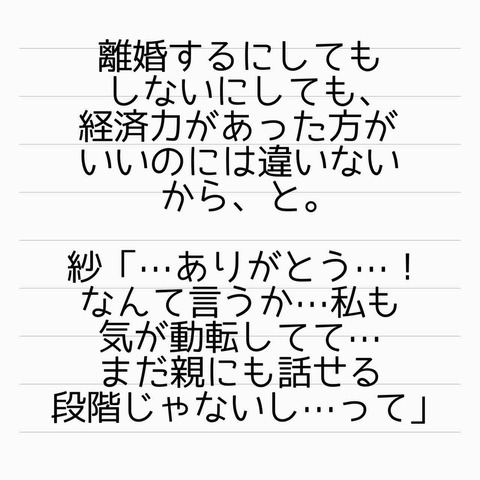 離婚するにしても
しないにしても、
経済力があった方が
いいのには違いない
から、と。
紗「…ありがとう…！
なんて言うか…私も
気が動転してて…
まだ親にも話せる
段階じゃないし…って」